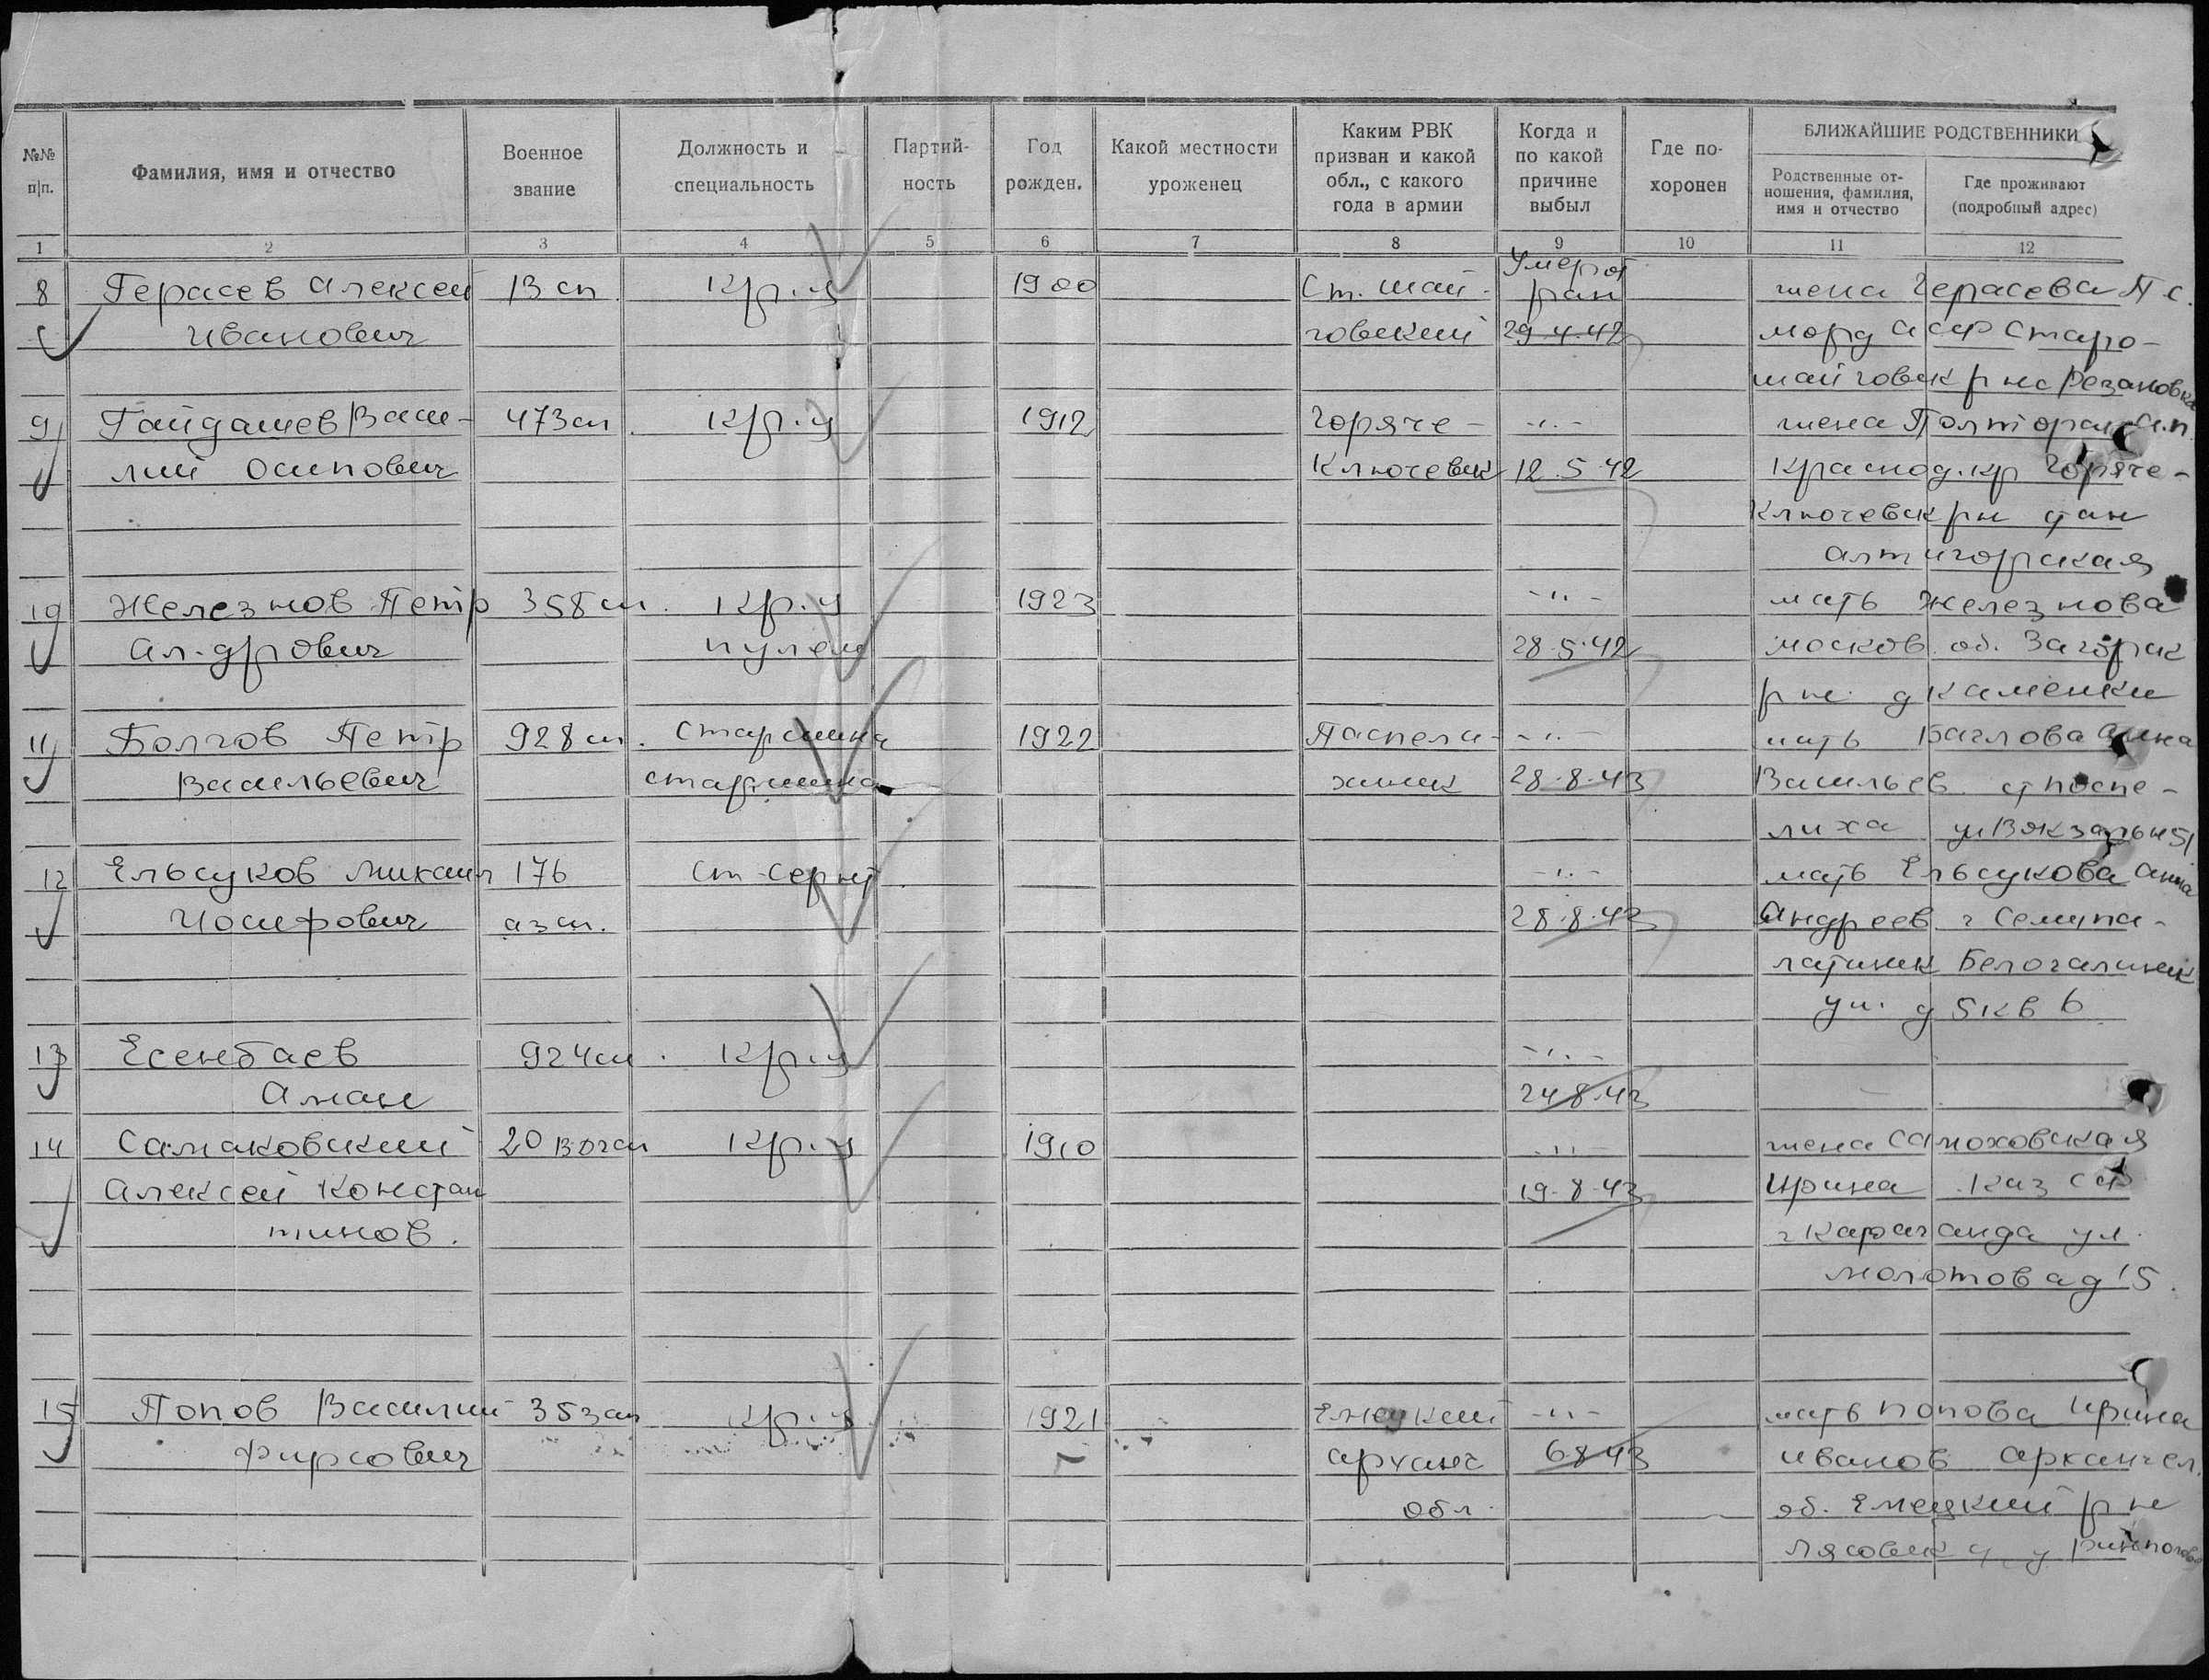 БЛИЖАЙШИЕ РОДСТВЕННИКИ
№№ п|п. Фамилия, имя и отчество Военное звание Должность и специальность Партий- ность Год рожден. Какой местности уроженец Каким РВК призван и какой обл., с какого года в армии Когда и по какой причине выбыл Где по- хоронен Родственные от- ношения, фамилия, имя и отчество Где проживают (подробный адрес)
1 2 3 4 5 6 7 8 9 10 11 12
Умер от
8 Герасев Алексей 13 сп. Кр-ц 1900 Ст. Шай- ран жена Герасева П с.
Иванович говский 29.4.42 морд аср Старо-
шайговск р нс Резановка
9 Гайдашев Васи- 473 сп. Кр-ц 1912 Горяче- -"- жена
лий Осипович Ключевск 12.5.42 Краснод. кр Горяче-
Ключевск рн стан
10 Железнов Петр 358 сп. Кр-ц 1923 -"- мать Железнова
Ал-дрович пулем 28.5.42 москов. об. Загорск
рн. д Каменки
11 Болгов Петр 928 сп. Старшина 1922 Паспели- -"- мать Баглова Анна
Васильевич старшина хинск 28.8.43 Васильев. ст поспе-
лиха ул Вокзальн 51
12 Ельсуков Михаил 176 Ст-сержт -"- мать Ельсукова Анна
Иосифович азсп. 28.8.43 Андреев. г Семипа-
латинск Белогалинск
ул. д 5 кв 6
13 Есенбаев 924 сп. Кр-ц -"-
Аман 24 8.43
14 Самаковский 20 Кр-ц 1910 -"- жена Самоховская
Алексей Констан 19.8.43 Ирина Каз сср
тинов. г Караганда ул.
Молотова д 15.
15 Попов Василий 353 сп Кр-ц 1921 Емецкий -"- мать Попова Ирина
Фирсович арханг 6 8 43 Иванов Архангел.
обл. об. Емецкий р н